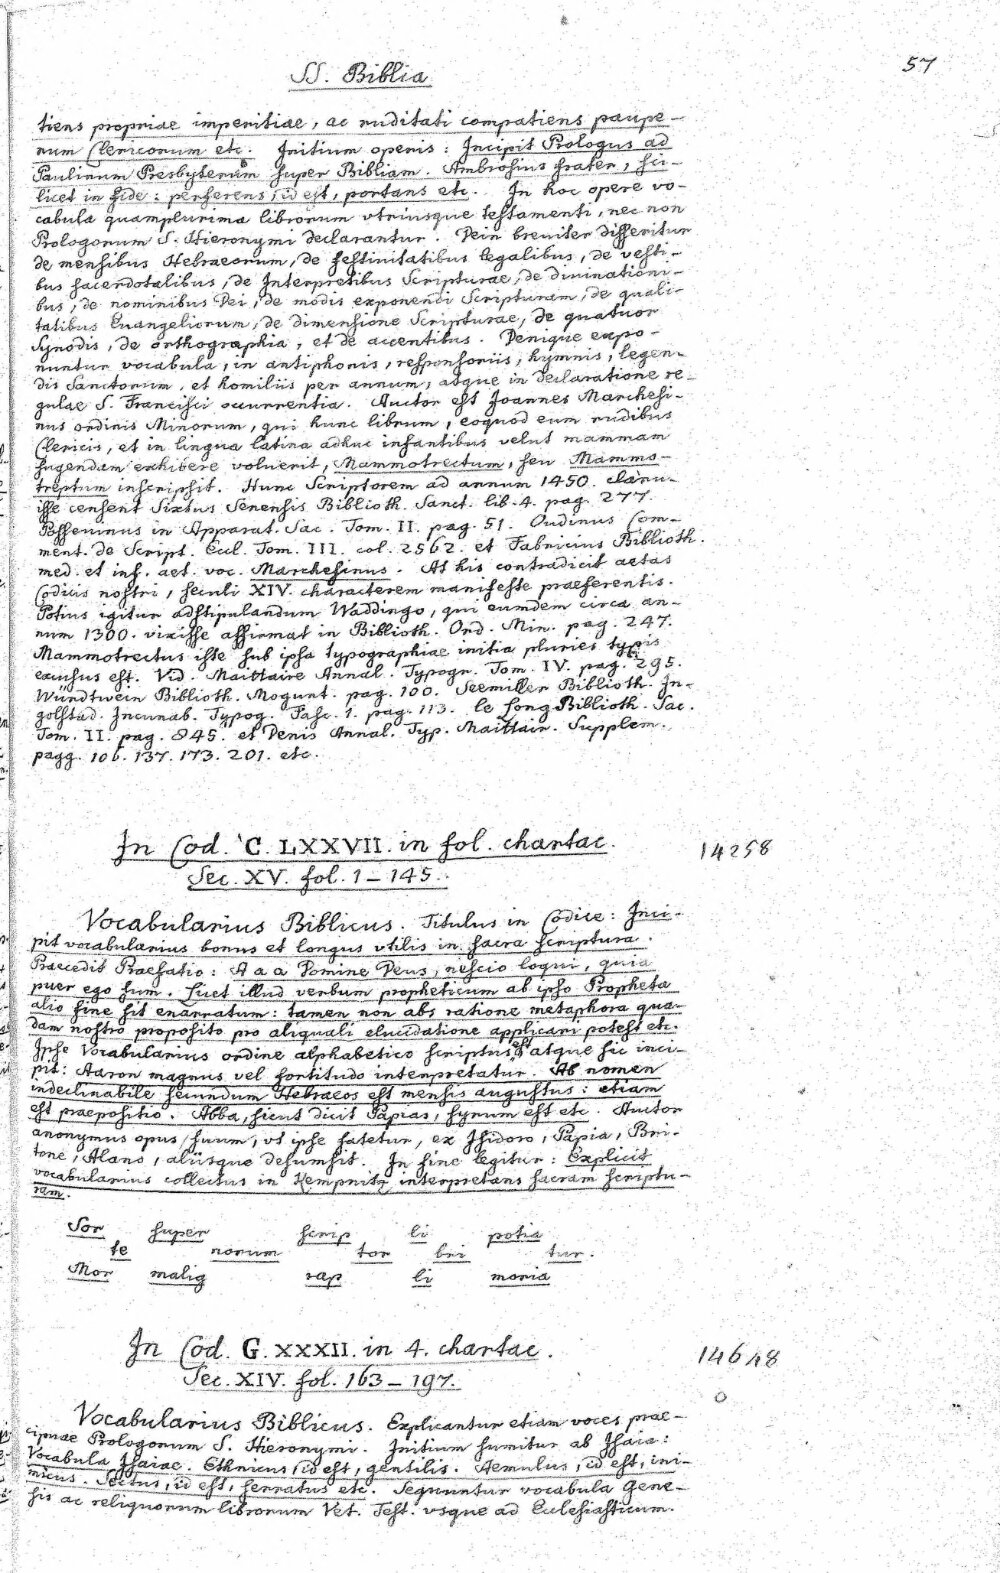 57
SS. Biblia
tiens propriae imperitiae, ac ruditati compatiens paupe-
rum Clericorum etc. Initium operis: Incipit Prologus ad
Paulinum Presbyterum super Bibliam. Ambrosius frater, sci-
licet in fide: perferens, id est, portans etc. In hoc opere vo-
cabula quamplurima librorum vtriusque testamenti, nec non
Prologorum S. Hieronymi declarantur. Dein breviter differitur
de mensibus Hebraeorum, de festivitatibus legalibus, de vesti-
bus sacerdotalibus, de Interpretibus Scripturae, de divinationi-
bus, de nominibus Dei, de modis exponendi Scripturam, de quali-
tatibus Evangeliorum, de dimensione Scripturae, de quatuor
Synodis, de orthographia, et de accentibus. Denique expo-
nuntur vocabula, in antiphonis, responsoriis, hymnis, legen-
dis Sanctorum, et homiliis per annum, atque in declaratione re-
gulae S. Francisci occurrentia. Auctor est Joannes Marchesi-
nus ordinis Minorum, qui hunc librum, eoquod eum rudibus
Clericis, et in lingua latina adhuc infantibus velut mammam
sugendam exhibere voluerit, Mammotrectum, seu Mammo-
treptum inscripsit. Hunc Scriptorem ad annum 1450. claru-
isse censent Sixtus Senensis Biblioth. Sanct. lib. 4. pag. 277.
Possevinus in Apparat. Sac. Tom. II. pag. 51. Oudinus Com-
ment. de Script. Eccl. Tom. III. col. 2562. et Fabricius Biblioth.
med. et inf. aet. voc. Marchesinus. At his contradicit aetas
Codicis nostri, seculi XIV. characterem manifeste praeferentis.
Potius igitur adstipulandum Waddingo, qui eumdem circa an-
num 1300. vixisse affirmat in Biblioth. Ord. Min. pag. 247.
Mammotrectus iste sub ipsa typographiae initia pluries typis
excusus est. Vid. Maittaire Annal. Typogr. Tom. IV. pag. 295.
Würdtwein Biblioth. Mogunt. pag. 100. Seemiller Biblioth. In-
golstad. Incunab. Typog. Fasc. 1. pag. 113. le Long Biblioth. Sac.
Tom. II. pag. 845. et Denis Annal. Typ. Maittair. Supplem.
pagg. 106. 137. 173. 201. etc.
In Cod. C. LXXVII. in fol. chartac. 14258
Sec. XV. fol. 1-145.
Vocabularius Biblicus. Titulus in Codice: Inci-
pit vocabularius bonus et longus vtilis in sacra scriptura.
Praecedit Praefatio: A a a Domine Deus, nescio loqui, quia
puer ego sum. Licet illud verbum propheticum ab ipso Propheta
alio fine sit enarratum: tamen non abs ratione metaphora qua-
dam nostro proposito pro aliquali elucidatione applicari potest etc.
Ipse Vocabularius ordine alphabetico scriptus est atque sic inci-
pit: Aaron magnus vel fortitudo interpretatur. Ab nomen
indeclinabile secundum Hebraeos est mensis augustus: etiam
est praepositio. Abba, sicut dicit Papias, syrum est etc. Auctor
anonymus opus suum, vt ipse fatetur, ex Isidoro, Papia, Bri-
tone, Alano, aliisque desumsit. In fine legitur: Explicit
vocabularius collectus in Kempnitz interpretans sacram scriptu-
ram.
Sor super scrip li potia
te norum tor bri tur.
Mor malig rap li moria
In Cod. G. XXXII. in 4. chartac. 14648
Sec. XIV. fol. 163-197.
Vocabularius Biblicus. Explicantur etiam voces prae-
cipuae Prologorum S. Hieronymi. Initium sumitur ab Isaia:
Vocabula Isaiae. Ethnicus, id est, gentilis. Aemulus, id est, ini-
micus. Sectus, id est, serratus etc. Sequuntur vocabula Gene-
sis ac reliquorum librorum Vet. Test. vsque ad Ecclesiasticum.